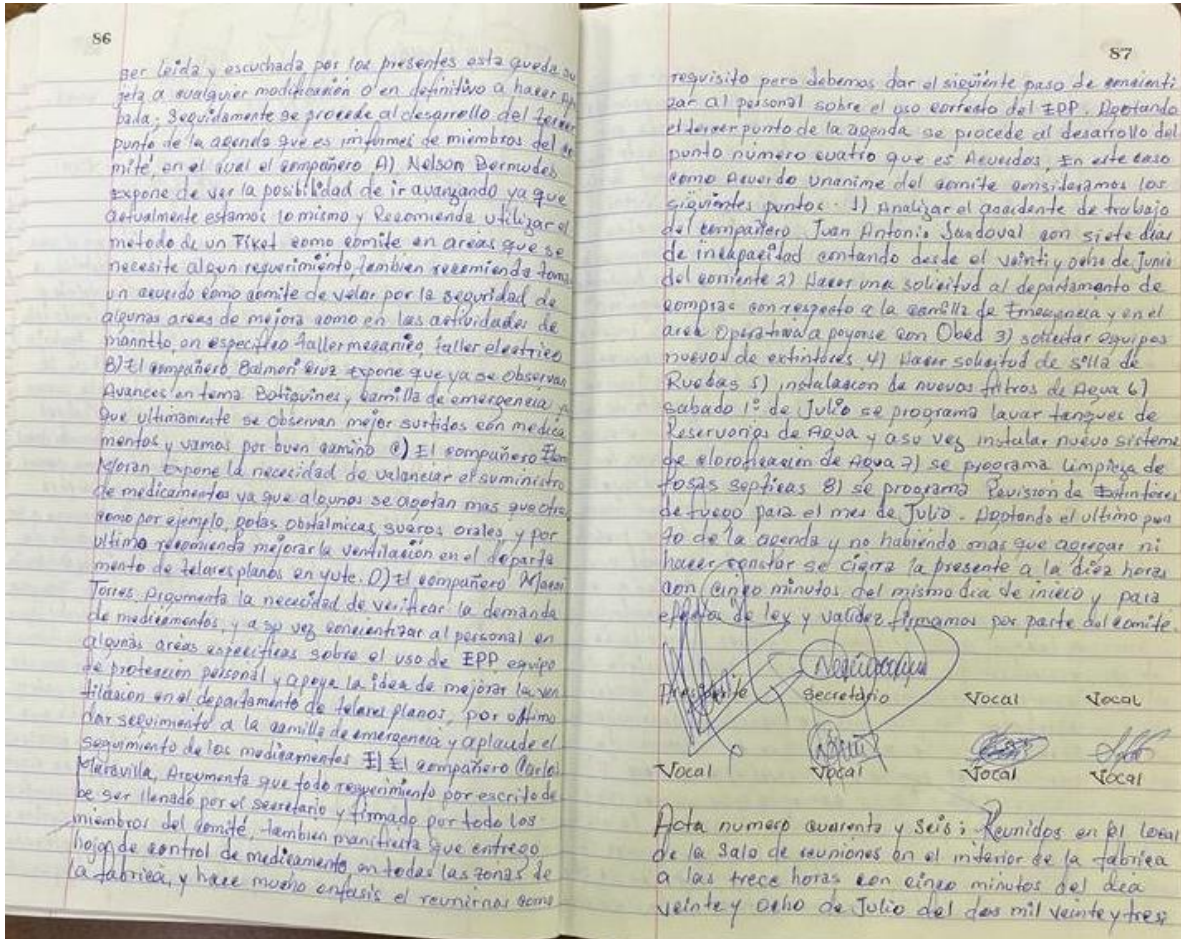 86
ser leida y escuchada por los presentes esta queda su
jeta a cualquier modificación o en definitivo a hacer Apro
bada; Seguidamente se procede al desarrollo del tercer
punto de la agenda que es informes de miembros del co
mité, en el cual el compañero A) Nelson Bermudes
Expone de ver la posibilidad de ir avanzando ya que
actualmente estamos lo mismo y Recomienda utilizar el
metodo de un Tiket como comite en areas que se
necesite algun requerimiento, tambien recomienda tomar
un acuerdo como comite de velar por la seguridad de
algunas areas de mejora como en las actividades de
manntto, en especifico taller mecanico, taller electrico
B) El compañero Balmon Cruz expone que ya se observan
Avances en tema Botiquines, camilla de emergencia y
que ultimamente se observan mejor surtidos con medica
mentos y vamos por buen camino C) El compañero
Moran Expone la nececidad de valanciar el suministro
de medicamentos ya que algunos se agotan mas que otros
como por ejemplo, gotas obstalmicas, sueros orales, y por
ultimo recomienda mejorar la ventilación en el departa
mento de telares planos en yute. D) El compañero
Torres Argumenta la nececidad de verificar la demanda
de medicamentos, y a su vez concientizar al personal en
algunas areas especificas sobre el uso de EPP equipo
de protección personal y apoya la idea de mejorar la ven
tilacion en el departamento de telares planos, por ultimo
dar seguimiento a la camilla de emergencia y aplaude el
seguimiento de los medicamentos E) El compañero Carlos
Maravilla, Argumenta que todo requerimiento por escrito de
be ser llenado por el secretario y firmado por todo los
miembros del comité, tambien manifiesta que entrego
hojas de control de medicamento en todas las zonas de
la fabrica, y hace mucho enfasis el reunirnos como
87
requisito pero debemos dar el siguiente paso de concienti
zar al personal sobre el uso correcto del EPP. Agotando
el tercer punto de la agenda se procede al desarrollo del
punto numero cuatro que es Acuerdos, En este caso
como Acuerdo unanime del comite consideramos los
siguientes puntos. 1) Analizar el accidente de trabajo
del compañero Juan Antonio Sandoval con siete dias
de incapacidad contando desde el veinti y ocho de junio
del corriente 2) Hacer una solicitud al departamento de
compras con respecto a la camilla de Emergencia y en el
area Operativa a poyarse con Obed 3) solicitar equipos
nuevos de extintores 4) Hacer solicitud de silla de
Ruedas 5) instalacion de nuevos filtros de Agua 6)
sabado 1º de Julio se programa lavar tanques de
Reservorios de Agua y a su vez instalar nuevo sisteme
de clorificación de Agua 7) se programa Limpieza de
fosas septicas 8) se programa Revisión de Extintores
de fuego para el mes de Julio. Agotando el ultimo pun
to de la agenda y no habiendo mas que agregar ni
hacer constar se cierra la presente a la diez horas
con cinco minutos del mismo dia de inicio y para
efectos de ley y validez firmamos por parte del comité.
Presidente Secretario Vocal Vocal
Vocal Vocal Vocal Vocal
Acta numero cuarenta y seis; Reunidos en el local
de la Sala de reuniones en el interior de la fabrica
a las trece horas con cinco minutos del dia
veinte y ocho de Julio del dos mil veinte y tres;